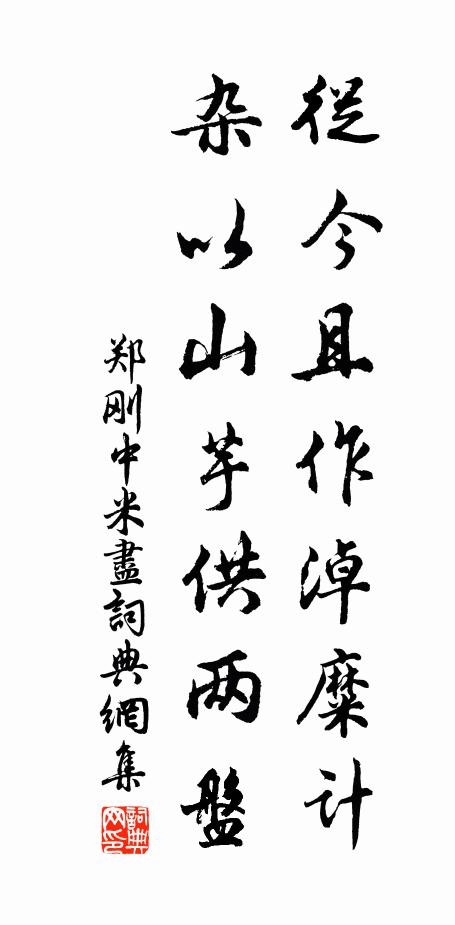 從今且作淖糜计
杂以山芋供两盤
郑刚中米盡詞典網集
詞典网印